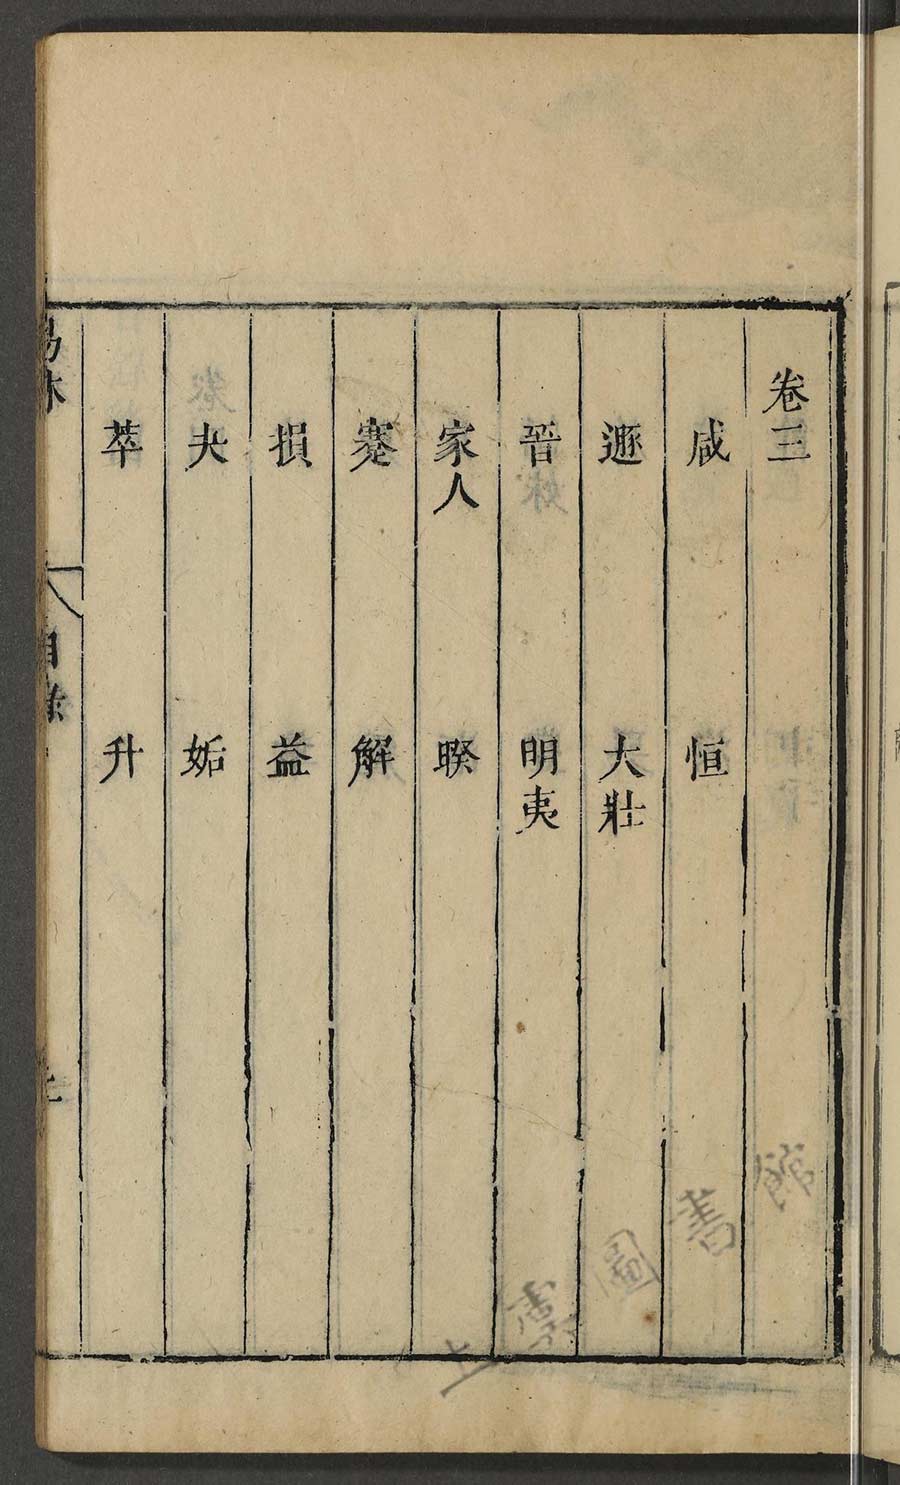 卷三
咸 恒
遯 大壯
晉 明夷
家人 睽
蹇 解
損 益
夬 姤
萃 升
目錄
上虞圖書館